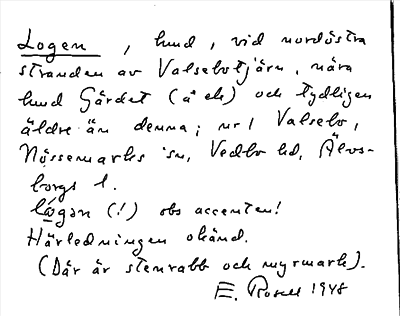 Logen, hmd, vid nordöstra
stranden av Valsebotjärn, nära
hmd Gärdet (a ek) och tydligen
äldre än denna; nr 1 Valsebo,
Nössemarks sn, Vedbo hd, Älvs-
borgs l.
(!) obs accenten!
Härledningen okänd.
(Där är stenrabb och myrmark).
E. Rosell 1948